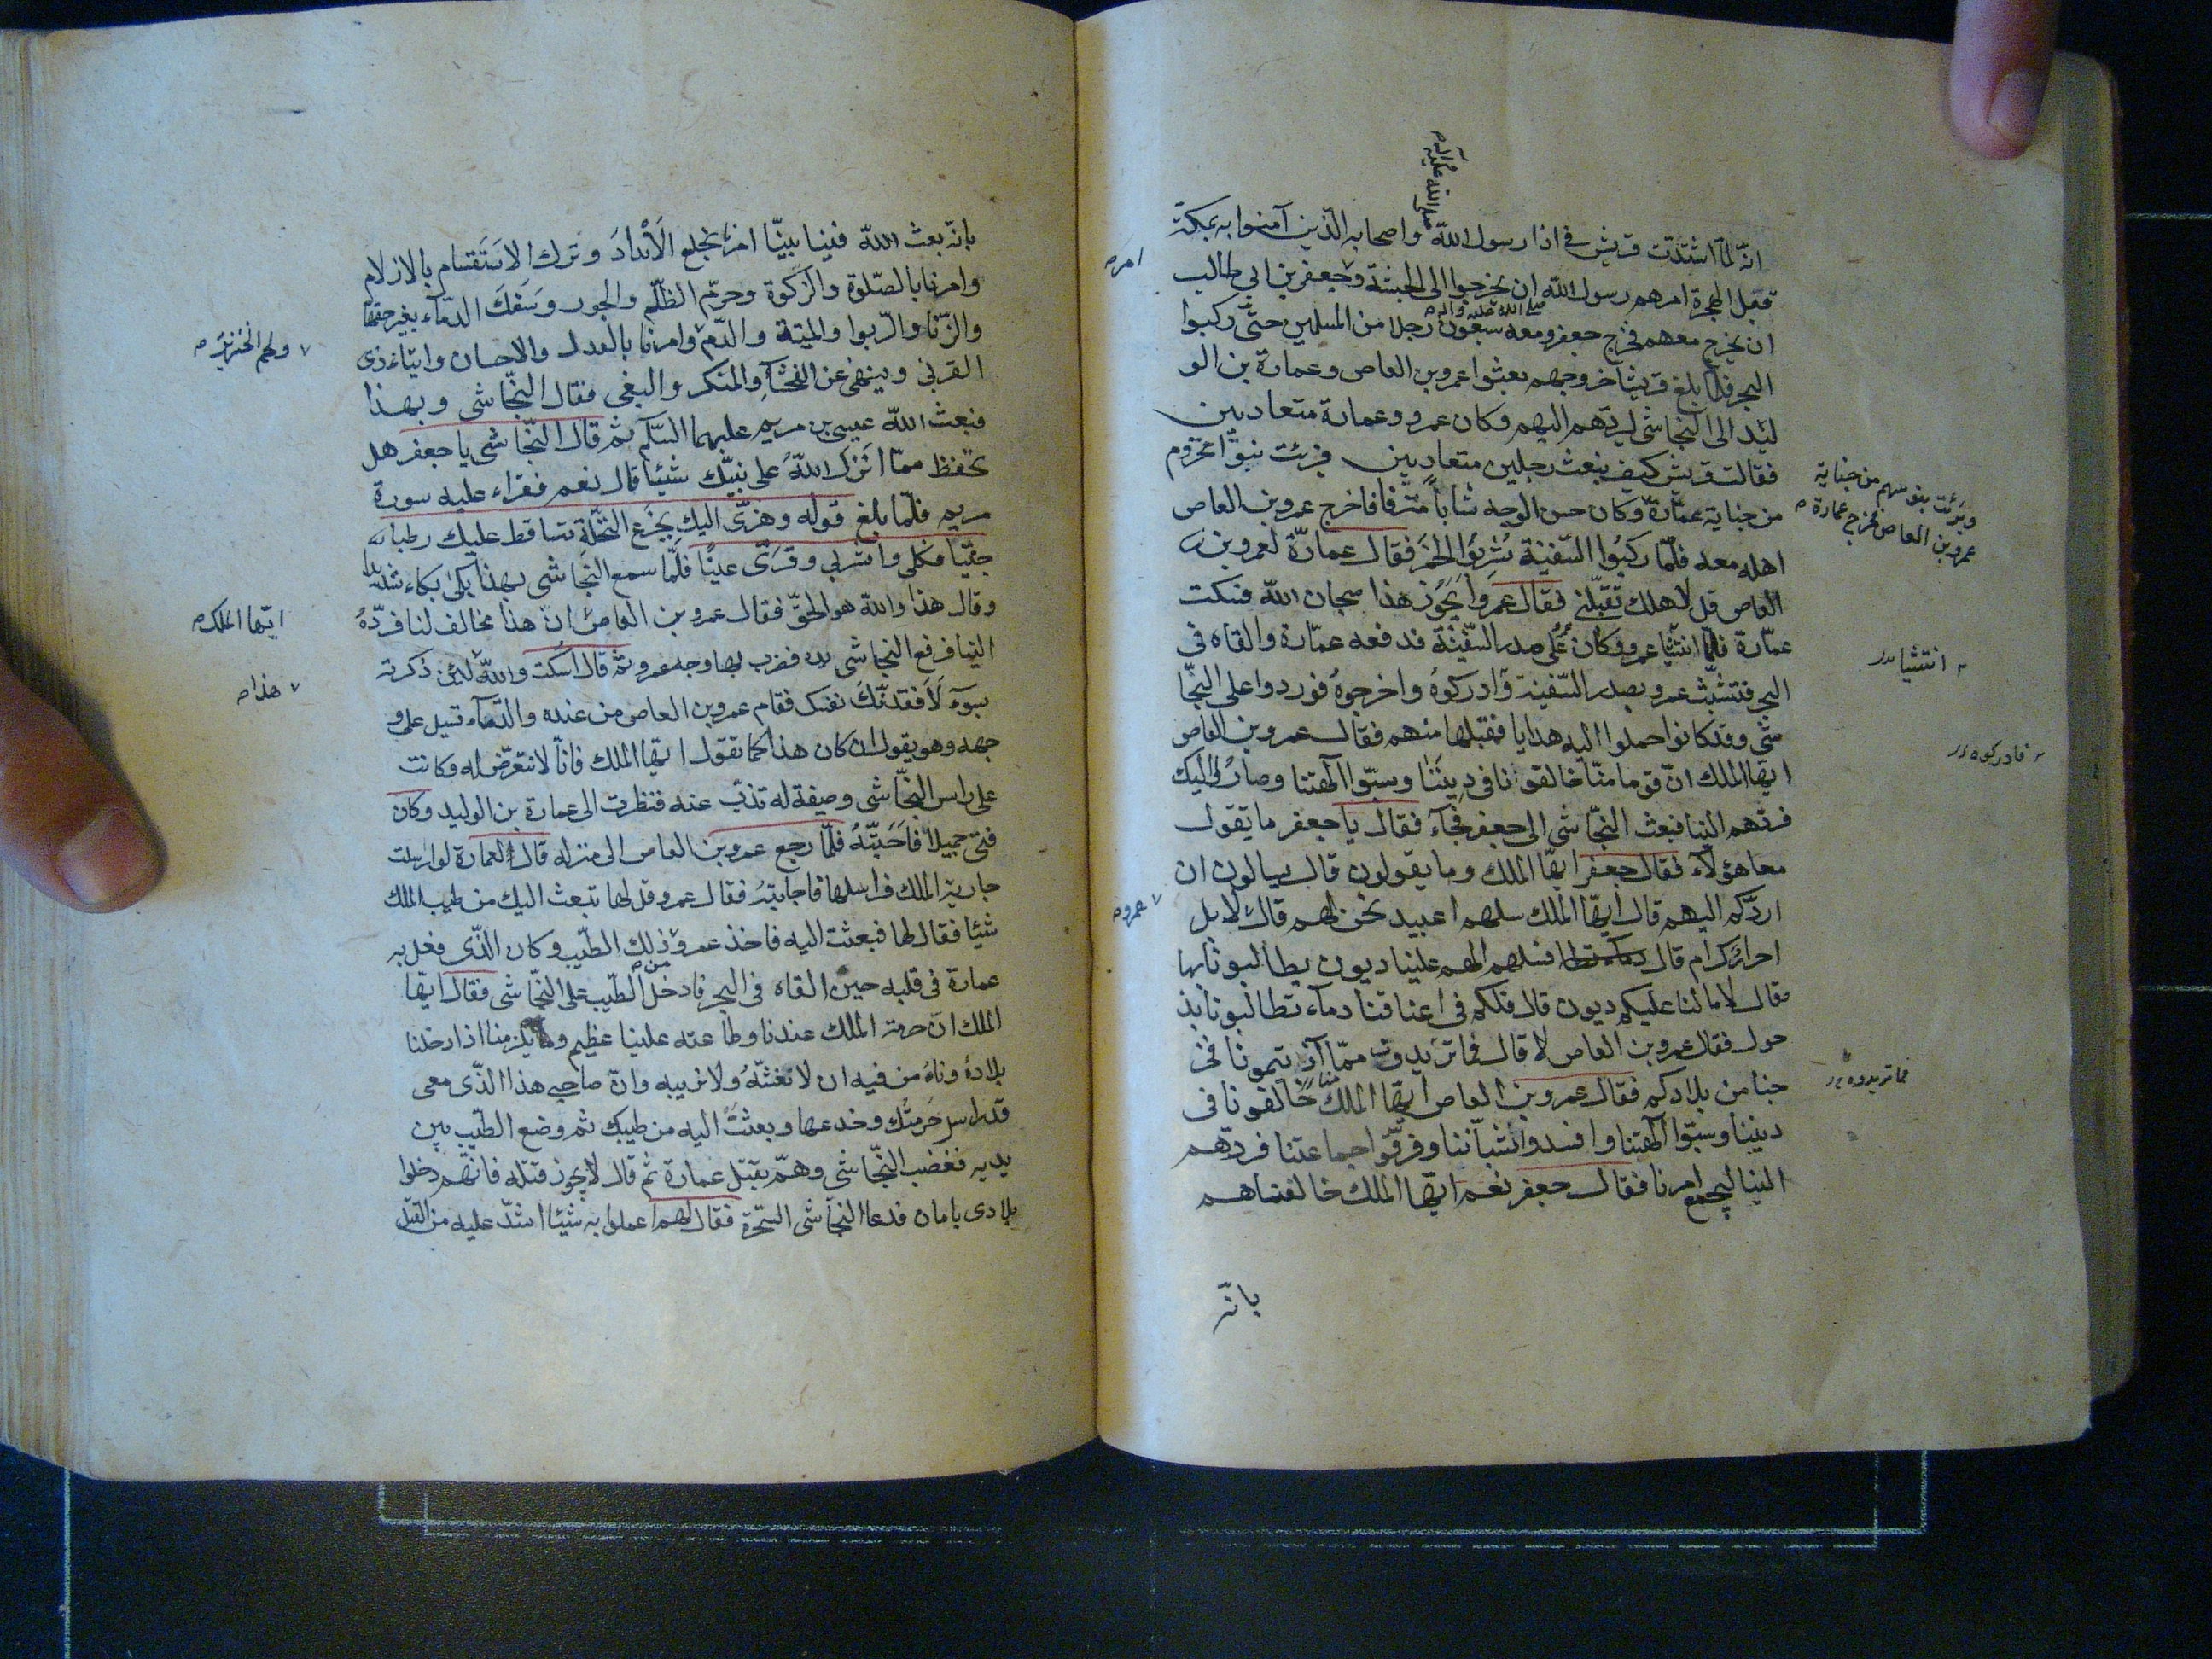 صلى الله عليه وآله
انّه لمّا اشتدّت قريش في اذا رسول الله واصحابه الّذين آمنوا به بمكّة
قبل الهجرة امرهم رسول الله ان يخرجوا الى الحبشة وجعفر بن ابي طالب
امره
صلى الله عليه وآله
ان يخرج معهم فخرج جعفر ومعه سبعون رجلا من المسلمين حتّى ركبوا
البحر فلمّا بلغ قريشا خروجهم بعثوا عمرو بن العاص وعمارة بن الو
ليد الى النجاشي ليردّهم اليهم وكان عمرو وعمارة متعاديين
فقالت قريش كيف نبعث رجلين متعاديين فبرئت بنوا مخزوم
من جناية عمّارة وكان حسن الوجه شاباً مترفا فاخرج عمرو بن العاص
وبرئت بنو سهم من جناية
عمرو بن العاص فخرج عمارة
اهله معه فلمّا ركبوا السّفينة شربوا الخمر فقال عمارة لعمرو بن
العاص قل لاهلك تقبّلني فقال عمرو ايجوز هذا سبحان الله فسكت
عمّارة فلمّا انتشا عمرو وكان على صدر السّفينة فدفعه عمّارة والقاه في
انتشيا
البحر فتشبّث عمرو بصدر السّفينة وادركوهُ واخرجوهُ فوردوا على النجّا
شي وقد كانوا حملوا اليه هدايا فقبلها منهم فقال عمرو بن العاص
فادركوه
ايّها الملك انّ قوما منّا خالفونا في ديننا وسبّوا آلهتنا وصاروا اليك
فردّهم الينا فبعث النجّاشي الى جعفر فجآء فقال يا جعفر ما يقول
معاهؤلآء فقال جعفر ايّها الملك وما يقولون قال يسالون ان
اردّكم اليهم قال ايّها الملك سلهم اعبيد نحن لهم قال لا بل
عمرو
احرار كرام قال فسلهم الهم علينا ديون يطالبونا بها
فقال لا مالنا عليكم ديون قال فلكم في اعناقنا دماء تطالبونا بذ
حول فقال عمرو بن العاص لا قال فما تريدون ممّا آذيتمونا فخر
فما تريدون
جنا من بلادكم فقال عمرو بن العاص ايّها الملك خالفونا في
ديننا وسبّوا آلهتنا وافسدوا شبّاننا وفرّقوا جماعتنا فردّهم
الينا ليجمع امرنا فقال جعفر نعم ايّها الملك خالفناهم
بانّه
بانّه بعث الله فينا نبيّا امرنا بخلع الانداد وترك الاستقسام بالازلام
وامرنا بالصّلوة والزّكوة وحرّم الظلم والجور وسفك الدمآء بغير حقّها
والزّنا والرّبوا والميتة والدّم وامرنا بالعدل والاحسان وايتاء ذى
ولحم الخنزير
القربى وينهى عن الفحشآء والمنكر والبغى فقال النّجاشى وبهذا
فبعث الله عيسى بن مريم عليهما السّلم ثم قال النجّاشى يا جعفر هل
تحفظ ممّا انزل اللهُ على نبيّك شيئا قال نعم فقراء عليه سورة
مريم فلمّا بلغ قوله وهزّى اليك بجزع النّخلة تساقط عليك رطبا
جنيّا فكلى واشربى وقرّى عينًا فلمّا سمع النجاشى بهذا بكى بكاء شديدا
وقال هذا والله هو الحقّ فقال عمرو بن العاص انّ هذا مخالف لنا فردّهُ
ايّها الملك
الينا فرفع النجاشى يده فضرب بها وجه عمرو ثم قال اسكت والله لئن ذكرته
بسوء لافقدنّك نفسك فقام عمرو بن العاص من عنده والدّمآء تسيل على و
هذا
جهه وهو يقول ان كان هذا كما تقول ايّها الملك فانّا لا نتعرّض له وكانت
على راس النجّاشى وصيفة له تذبّ عنه فنظرت الى عمارة بن الوليد وكان
فتى جميلا فاحبّتهُ فلمّا رجع عمرو بن العاص الى منزله قال لعمارة لو ارسلت
جارية الملك فراسلها فاجابتهُ فقال عمرو قل لها تبعث اليك من طيب الملك
شيئا فقال لها فبعثت اليه فاخذ عمرو ذلك الطّيب وكان الّذى فعل به
عمارة في قلبه حين القاه في البحر فادخل الطّيب على النجّاشى فقال ايّها
الملك انّ حرمة الملك عندنا وطاعته علينا عظيم وما يكرمنا اذا دخلنا
بلادهُ وناءمن فيه ان لا نغشّهُ ولا نريبه وانّ صاحبى هذا الّذى معى
قد راسل حرمتك وخدعها وبعثت اليه من طيبك ثم وضع الطّيب بين
يديه فغضب النجّاشى وهمّ بقتل عمارة ثم قال لا يجوز قتله فانّهم دخلوا
بلادى بامان فدعا النجّاشى السّحرة فقال لهم اعملوا به شيئا اشدّ عليه من القتل